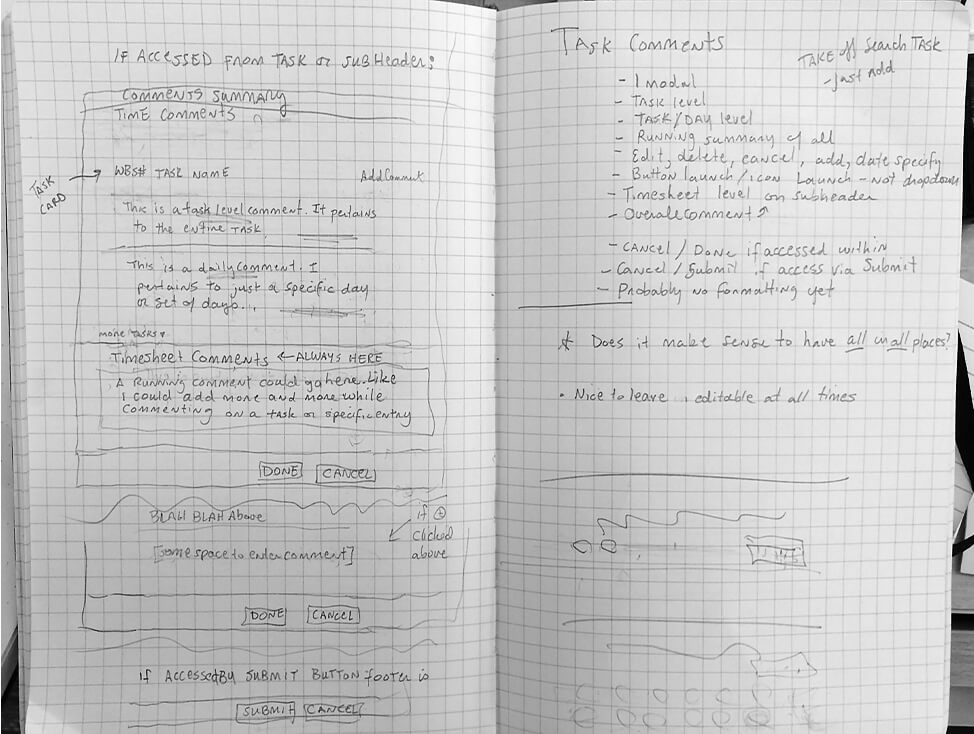 If Accessed From Task or SubHeader:
Comments Summary
Time Comments
Task Card
WBS# Task Name
Add Comment
This is a task level comment. It pertains
to the entire task.
This is a daily comment. I
pertains to just a specific day
or set of days...
more tasks
Timesheet Comments ← Always Here
A running comment could go here. Like
I could add more and more while
Commenting on a task or specific entry
Done Cancel
Blah Blah Above
if +
clicked
above
[some space to enter comment]
Done Cancel
if Accessed By Submit Button footer is
Submit Cancel
Task Comments
Take off Search Task
- just Add
- 1 modal
- Task level
- Task/Day level
- Running summary of all
- Edit, delete, cancel, add, date specify
- Button launch/icon Launch - not dropdown
- Timesheet level on subheader
- Overall comment ↗
- Cancel / Done if accessed within
- Cancel / Submit if access via Submit
- Probably no formatting yet
* Does it make sense to have all in all places?
• Nice to leave editable at all times